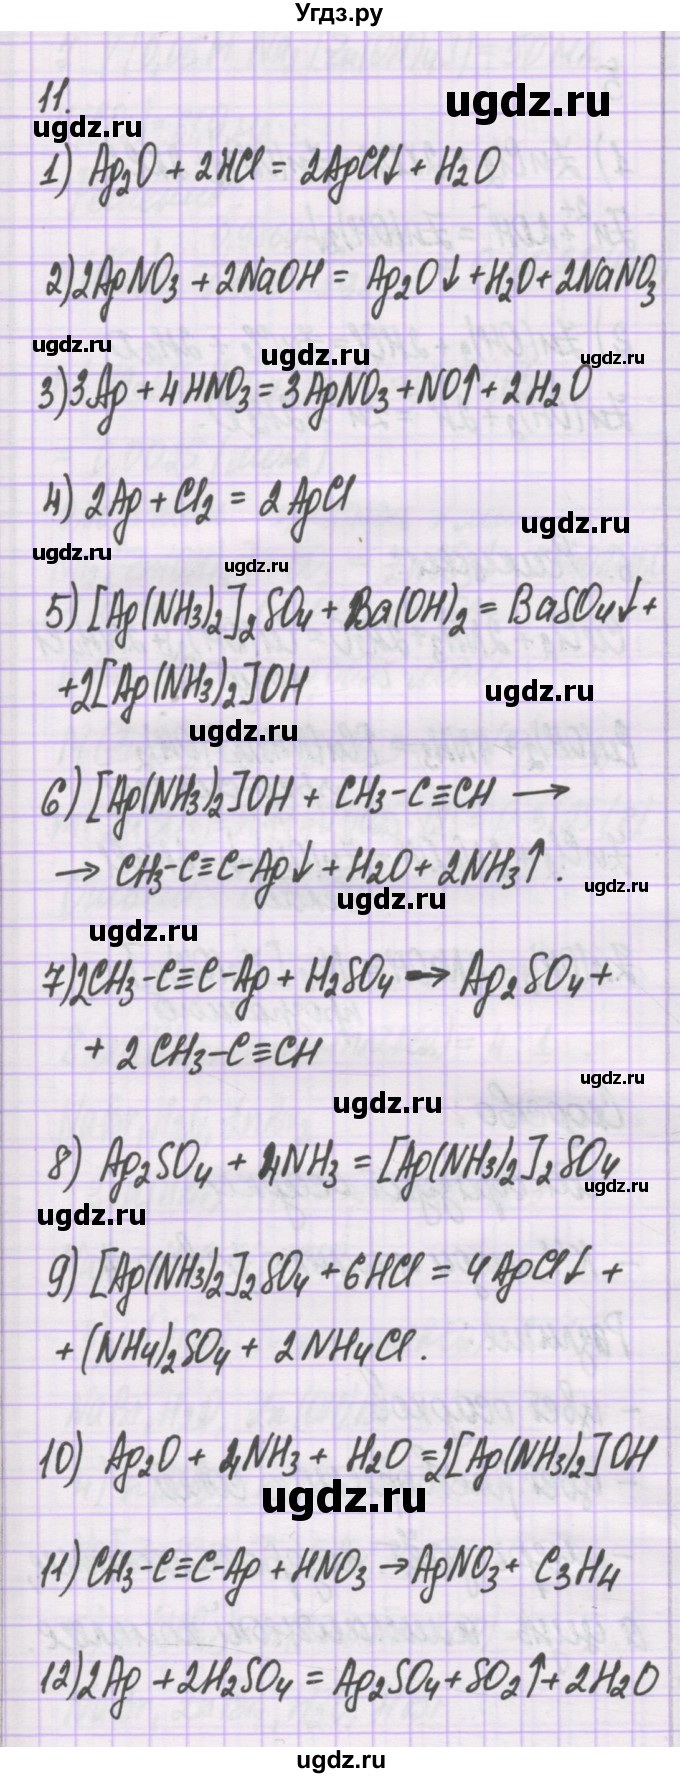 Угдз.ру
11.
ugdz.ru
ugdz.ru
1) Ag₂O + 2HCl = 2AgCl↓ + H₂O
2) 2AgNO₃ + 2NaOH = Ag₂O↓ + H₂O + 2NaNO₃
ugdz.ru
ugdz.ru
ugdz.ru
3) 3Ag + 4HNO₃ = 3AgNO₃ + NO↑ + 2H₂O
4) 2Ag + Cl₂ = 2AgCl
ugdz.ru
ugdz.ru
ugdz.ru
5) [Ag(NH₃)₂]₂SO₄ + Ba(OH)₂ = BaSO₄↓ +
+ 2[Ag(NH₃)₂]OH
ugdz.ru
ugdz.ru
6) [Ag(NH₃)₂]OH + CH₃-C≡CH →
→ CH₃-C≡C-Ag↓ + H₂O + 2NH₃↑.
ugdz.ru
ugdz.ru
ugdz.ru
7) 2CH₃-C≡C-Ag + H₂SO₄ → Ag₂SO₄ +
+ 2CH₃-C≡CH
ugdz.ru
ugdz.ru
8) Ag₂SO₄ + 4NH₃ = [Ag(NH₃)₂]₂SO₄
ugdz.ru
ugdz.ru
9) [Ag(NH₃)₂]₂SO₄ + 6HCl = 4AgCl↓ +
+ (NH₄)₂SO₄ + 2NH₄Cl.
10) Ag₂O + 4NH₃ + H₂O = 2[Ag(NH₃)₂]OH
ugdz.ru
11) CH₃-C≡C-Ag + HNO₃ → AgNO₃ + C₃H₄
12) 2Ag + 2H₂SO₄ = Ag₂SO₄ + SO₂↑ + 2H₂O
ugdz.ru